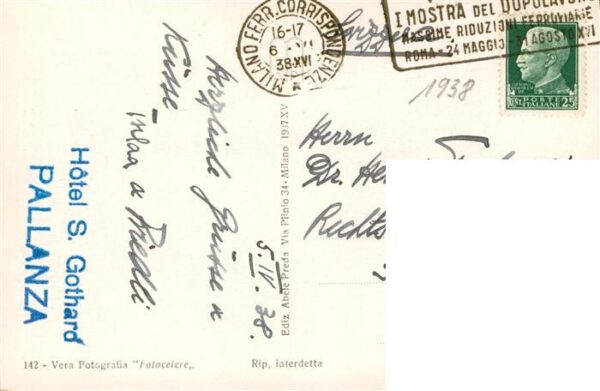 MILANO FERR. CORRISPONDENZE
16-17
38·XVI
I MOSTRA DEL DOPOLAVORO
MASSIME RIDUZIONI FERROVIARIE
ROMA - 24 MAGGIO - 31 AGOSTO XVI
POSTE
ITALIANE
CENT.
25
1938
Svizzera
Herrn
Dr.
Rechts
Herzliche Grüsse &
Küsse
5.IV.38.
Hôtel S. Gothard
PALLANZA
Ediz. Abele Preda Via Plinio 34 - Milano 1937 XV
142 - Vera Fotografia "Fotocelere„
Rip. interdetta